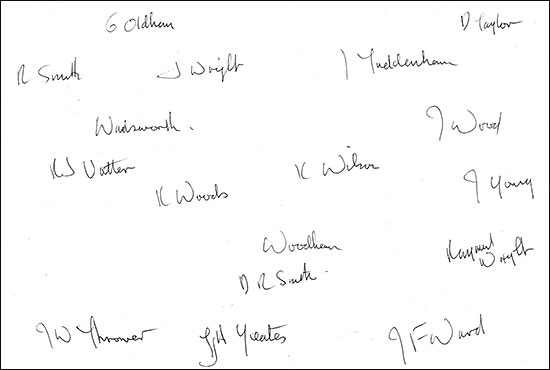 G Oldham
D Taylor
R Smith
J Wright
J Tuddenham
Wadsworth.
J Wood
RJ Vatter
K Wilson
K Woods
J Young
Woodham
Raymond Wright
D R Smith.
J W Thrower
Yeates
J F Ward